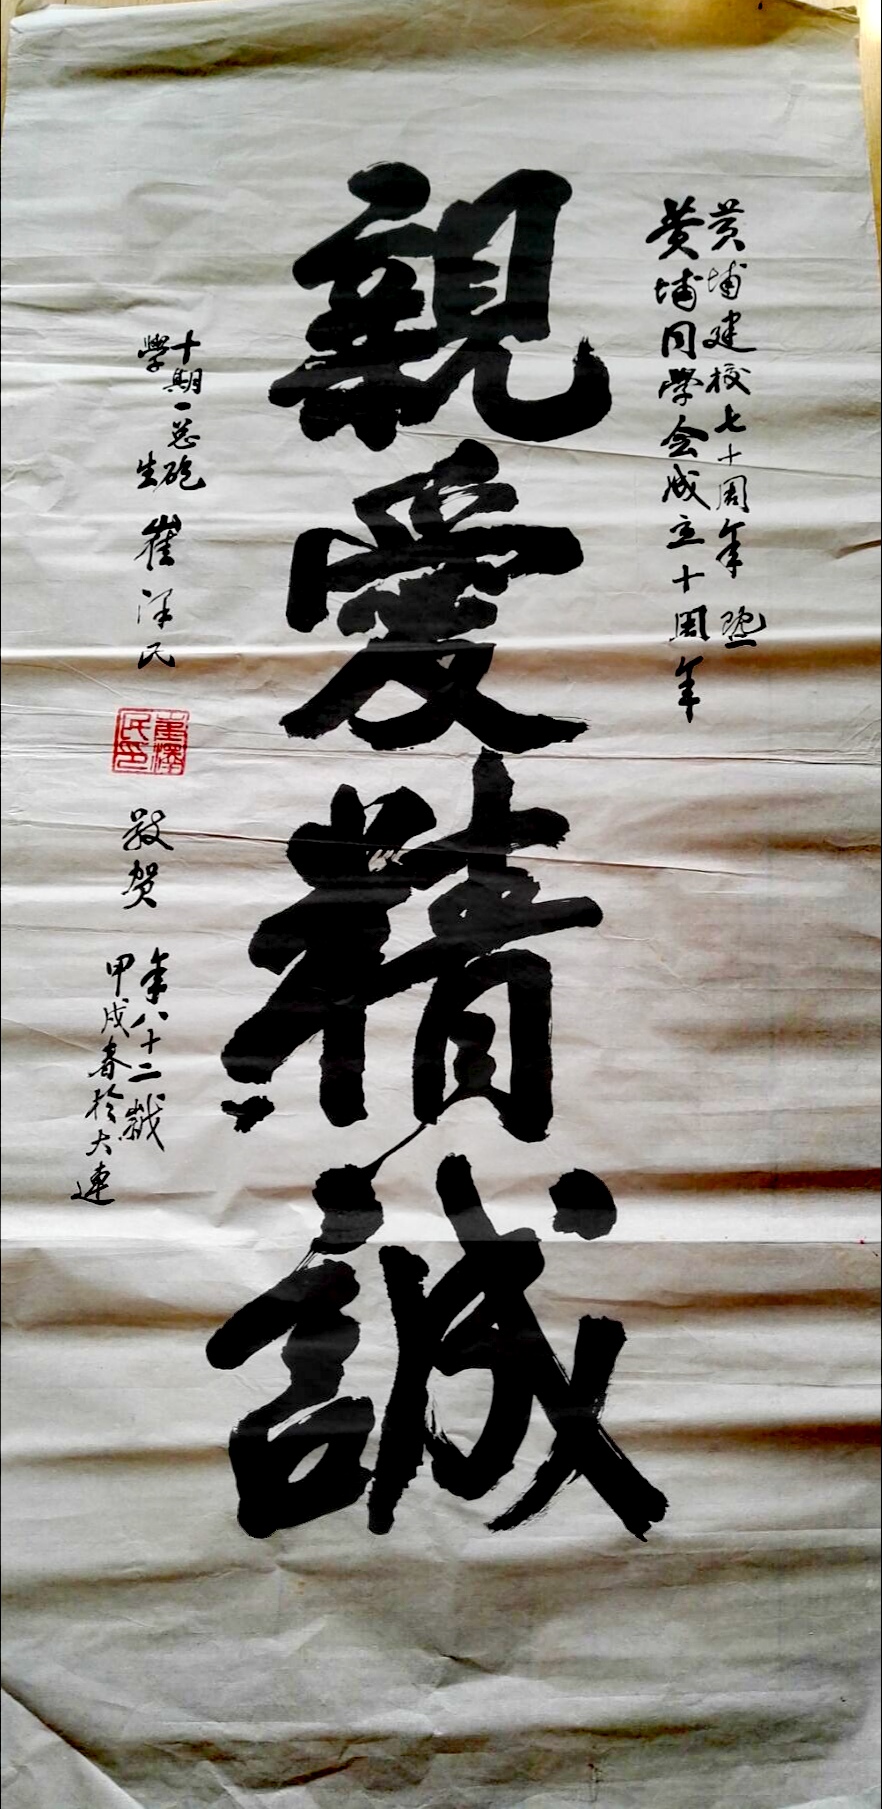 黄埔建校七十周年暨
黄埔同學会成立十周年
親愛精誠
十期一总砲
學生
崔泽民
崔澤民印
敬贺
年八十二歲
甲戌春於大連